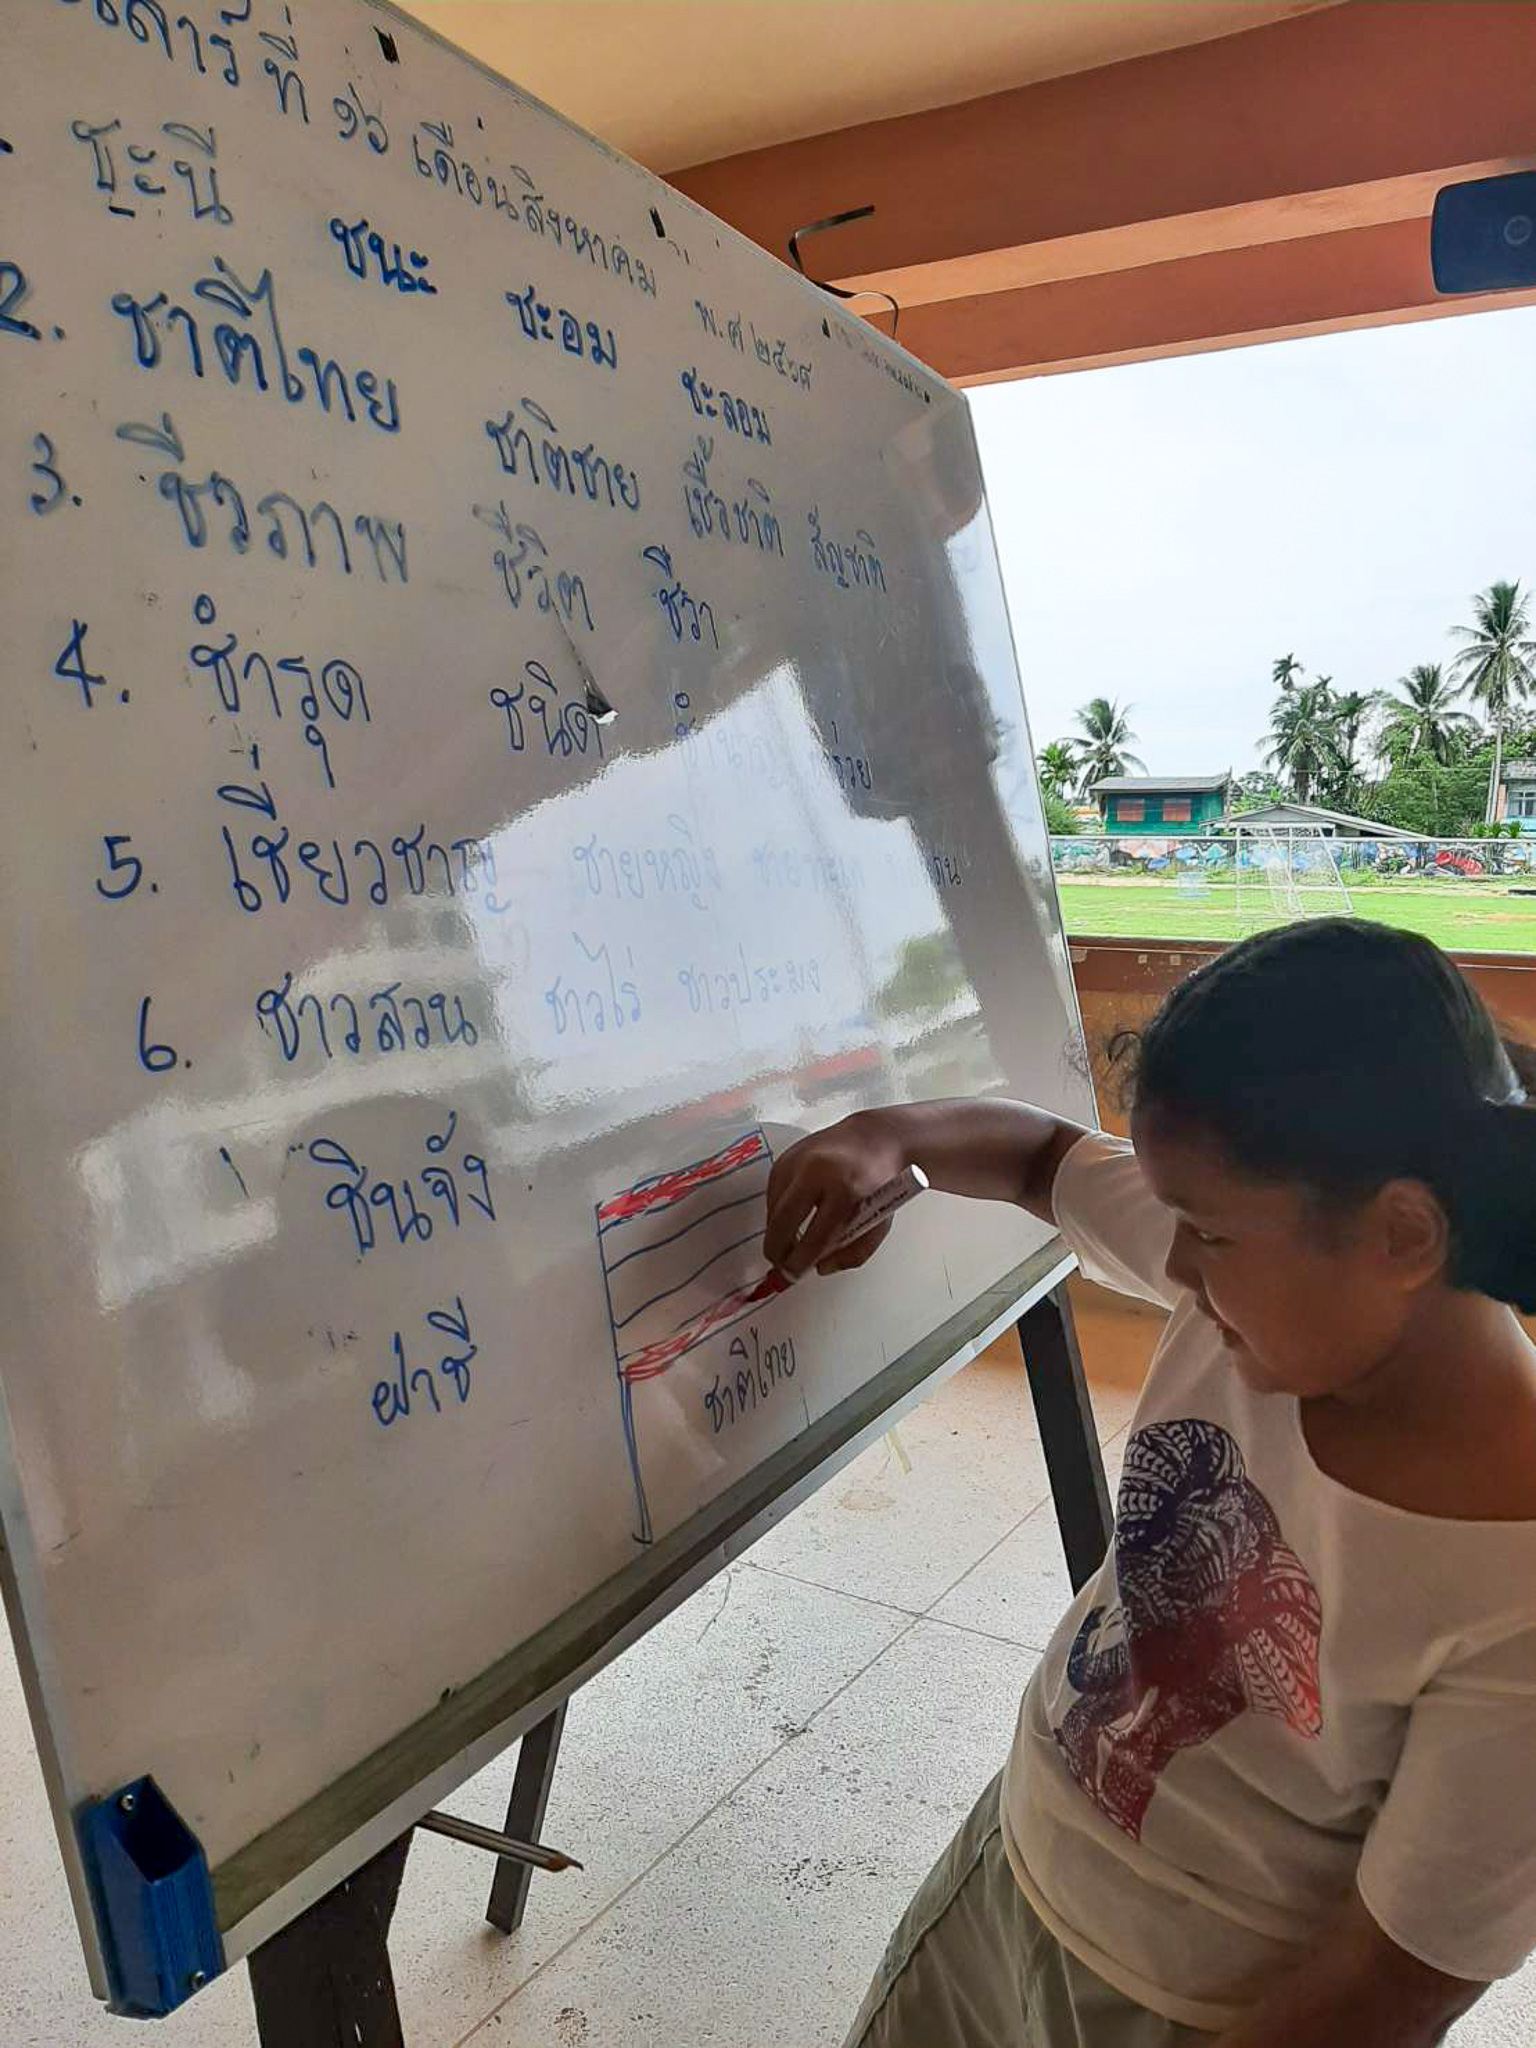 เสาร์ ที่ ๑๖ เดือนสิงหาคม พ.ศ
ชะนี ชนะ ชะอม ชะลอม
2. ชาติไทย ชาติชาย เชื้อชาติ สัญชาติ
3. ชีวภาพ ชีวิต ชีวา
4. ชำรุด ชนิด
5. เชี่ยวชาญ ชายหญิง
6. ชาวสวน ชาวไร่ ชาวประมง
ชินจัง
ฝาชี
ชาติไทย